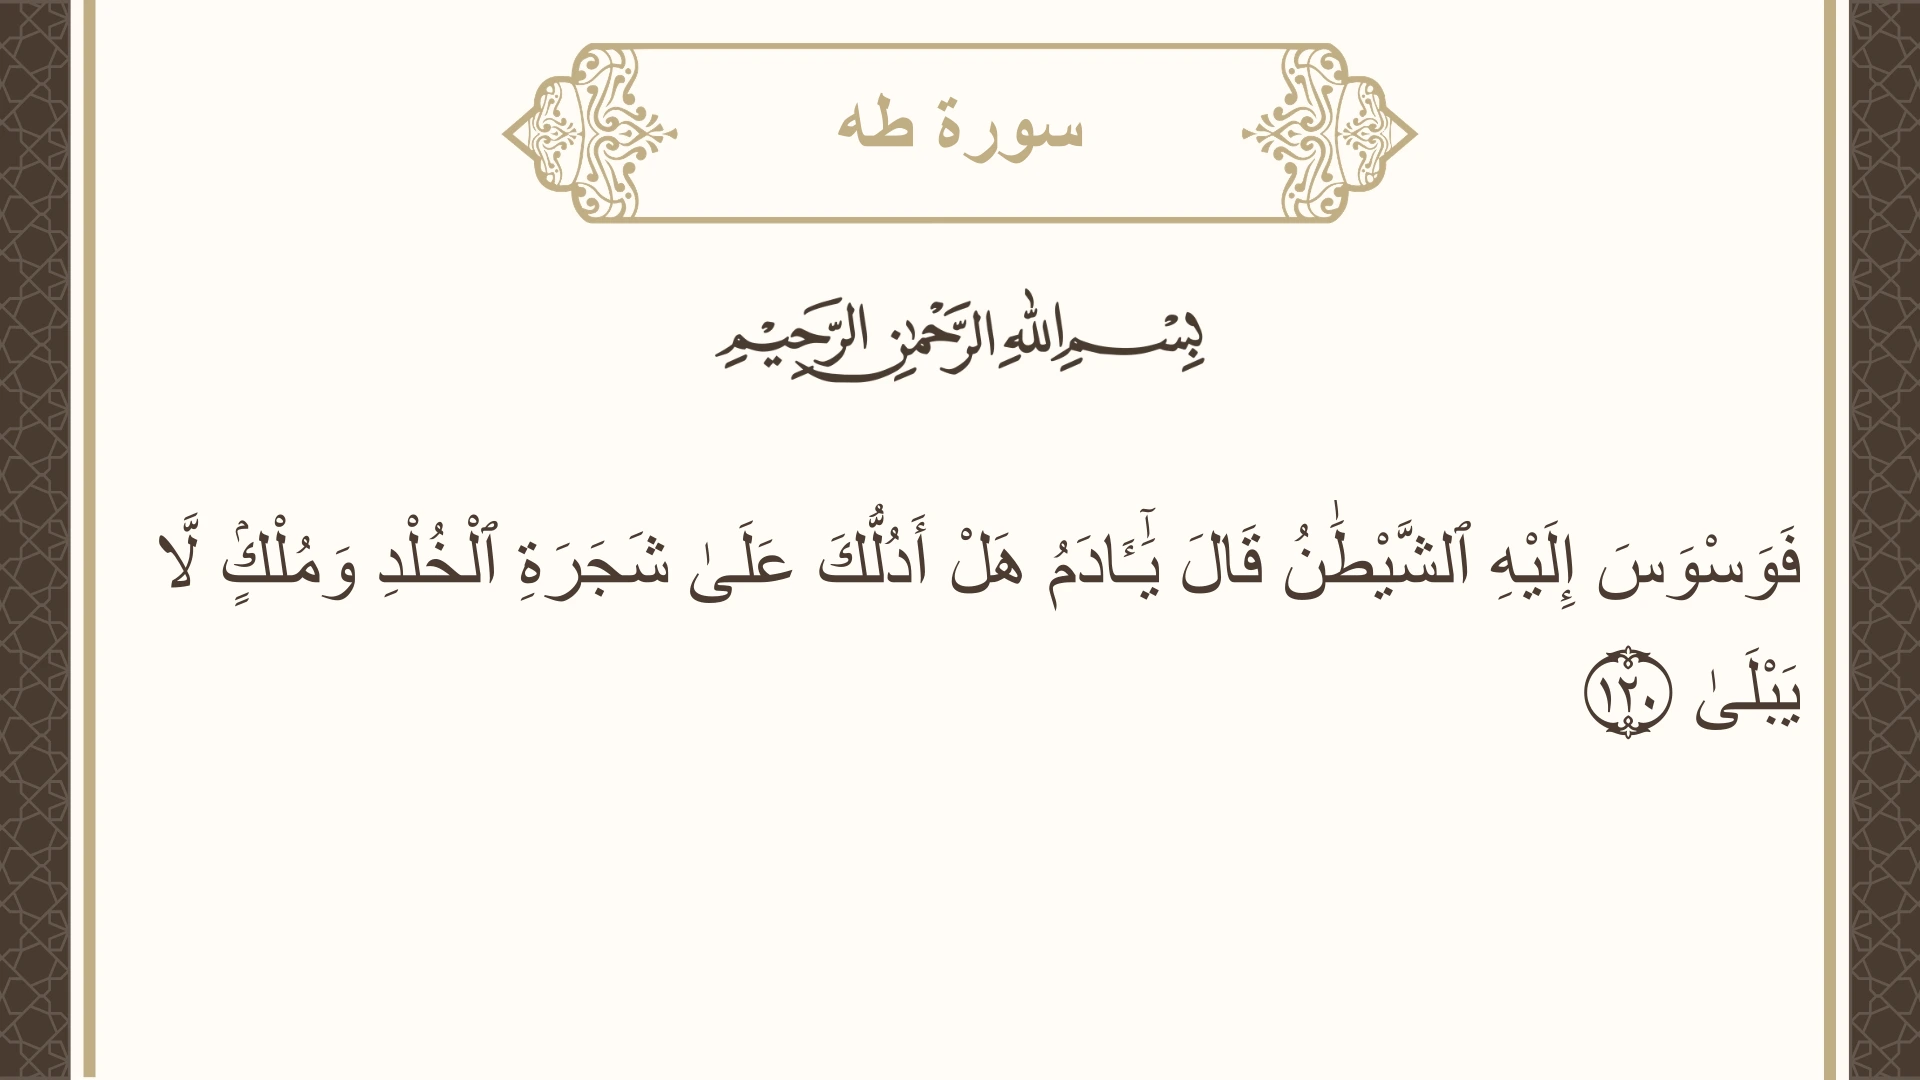 سورة طه
بِسْمِ اللهِ الرَّحْمٰنِ الرَّحِيْمِ
فَوَسْوَسَ إِلَيْهِ ٱلشَّيْطَٰنُ قَالَ يَـَٰٓـَٔادَمُ هَلْ أَدُلُّكَ عَلَىٰ شَجَرَةِ ٱلْخُلْدِ وَمُلْكٍۢ لَّا
يَبْلَىٰ ١٢٠